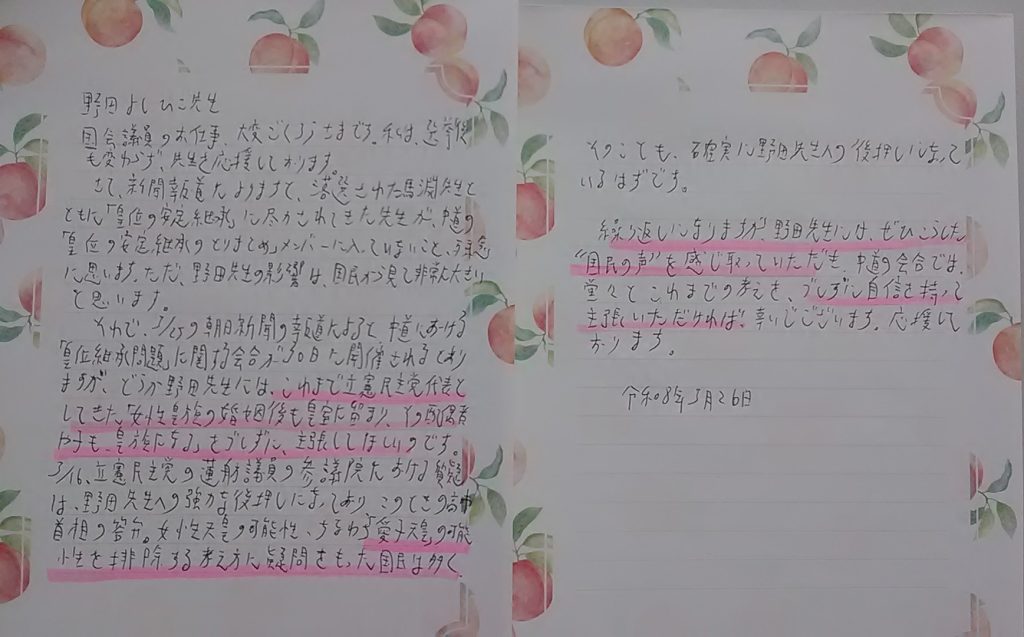 野田よしひこ先生
国会議員のお仕事、大変ごくろうさまです。私は、選挙後
も変わらず、先生を応援しております。
さて、新聞報道によりますと、落選された馬淵先生と
ともに「皇位の安定継承」に尽力されてきた先生が、中道の
「皇位の安定継承のとりまとめ」メンバーに入っていないこと、残念
に思います。ただ、野田先生の影響は、国民から見て非常に大きい
と思います。
それで、3/25の朝日新聞の報道によると、中道における
「皇位継承問題」に関する会合が30日に開催されるとあり
ますが、どうか野田先生には、これまで立憲民主党代表と
してきた「女性皇族の婚姻後も皇室に留まり、その配偶者
や子も、皇族になる」をブレずに、主張してほしいのです。
3/16、立憲民主党の蓮舫議員の参議院における質疑
は、野田先生への強力な後押しになっており、このときの高市
首相の答弁。女性天皇の可能性、すなわち「愛子天皇」の可能
性を排除する考え方に疑問をもった国民は多く、
そのことも、確実に野田先生への後押しになって
いるはずです。
繰り返しになりますが、野田先生には、ぜひこうした
“国民の声”を感じ取っていただき、中道の会合では、
堂々とこれまでの考えを、ブレずに自信を持って
主張いただければ、幸いでございます。応援して
おります。
令和8年3月26日